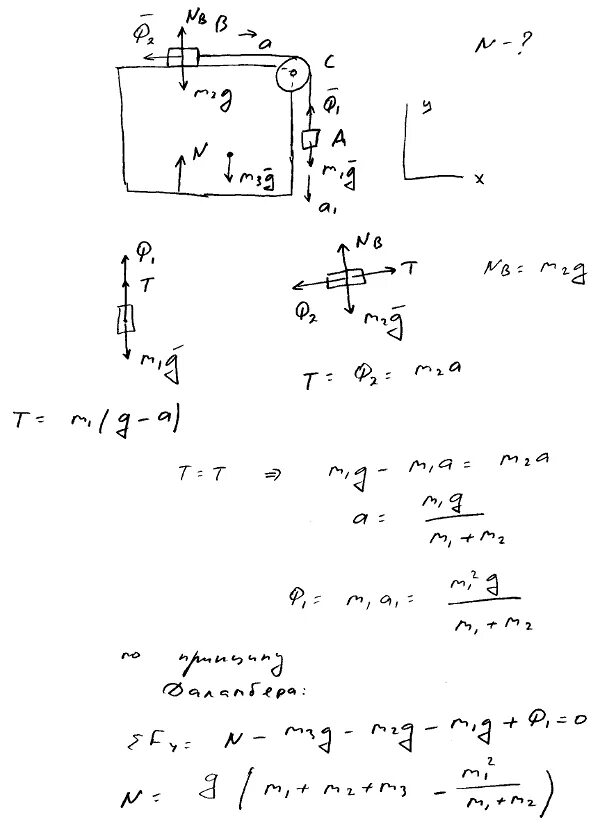 N_B B
Φ̄₂ → a
N - ?
C
m₂g
Φ̄₁
y
N
A
m₃ḡ
m₁ḡ
x
a₁
Φ₁
T
m₁ḡ
N_B
T
Φ₂
m₂ḡ
N_B = m₂g
T = Φ₂ = m₂a
T = m₁(g - a)
T = T ⇒ m₁g - m₁a = m₂a
a = m₁g / (m₁ + m₂)
Φ₁ = m₁a₁ = m₁²g / (m₁ + m₂)
по принципу
Даламбера:
ΣF_y = N - m₃g - m₂g - m₁g + Φ₁ = 0
N = g (m₁ + m₂ + m₃ - m₁² / (m₁ + m₂))